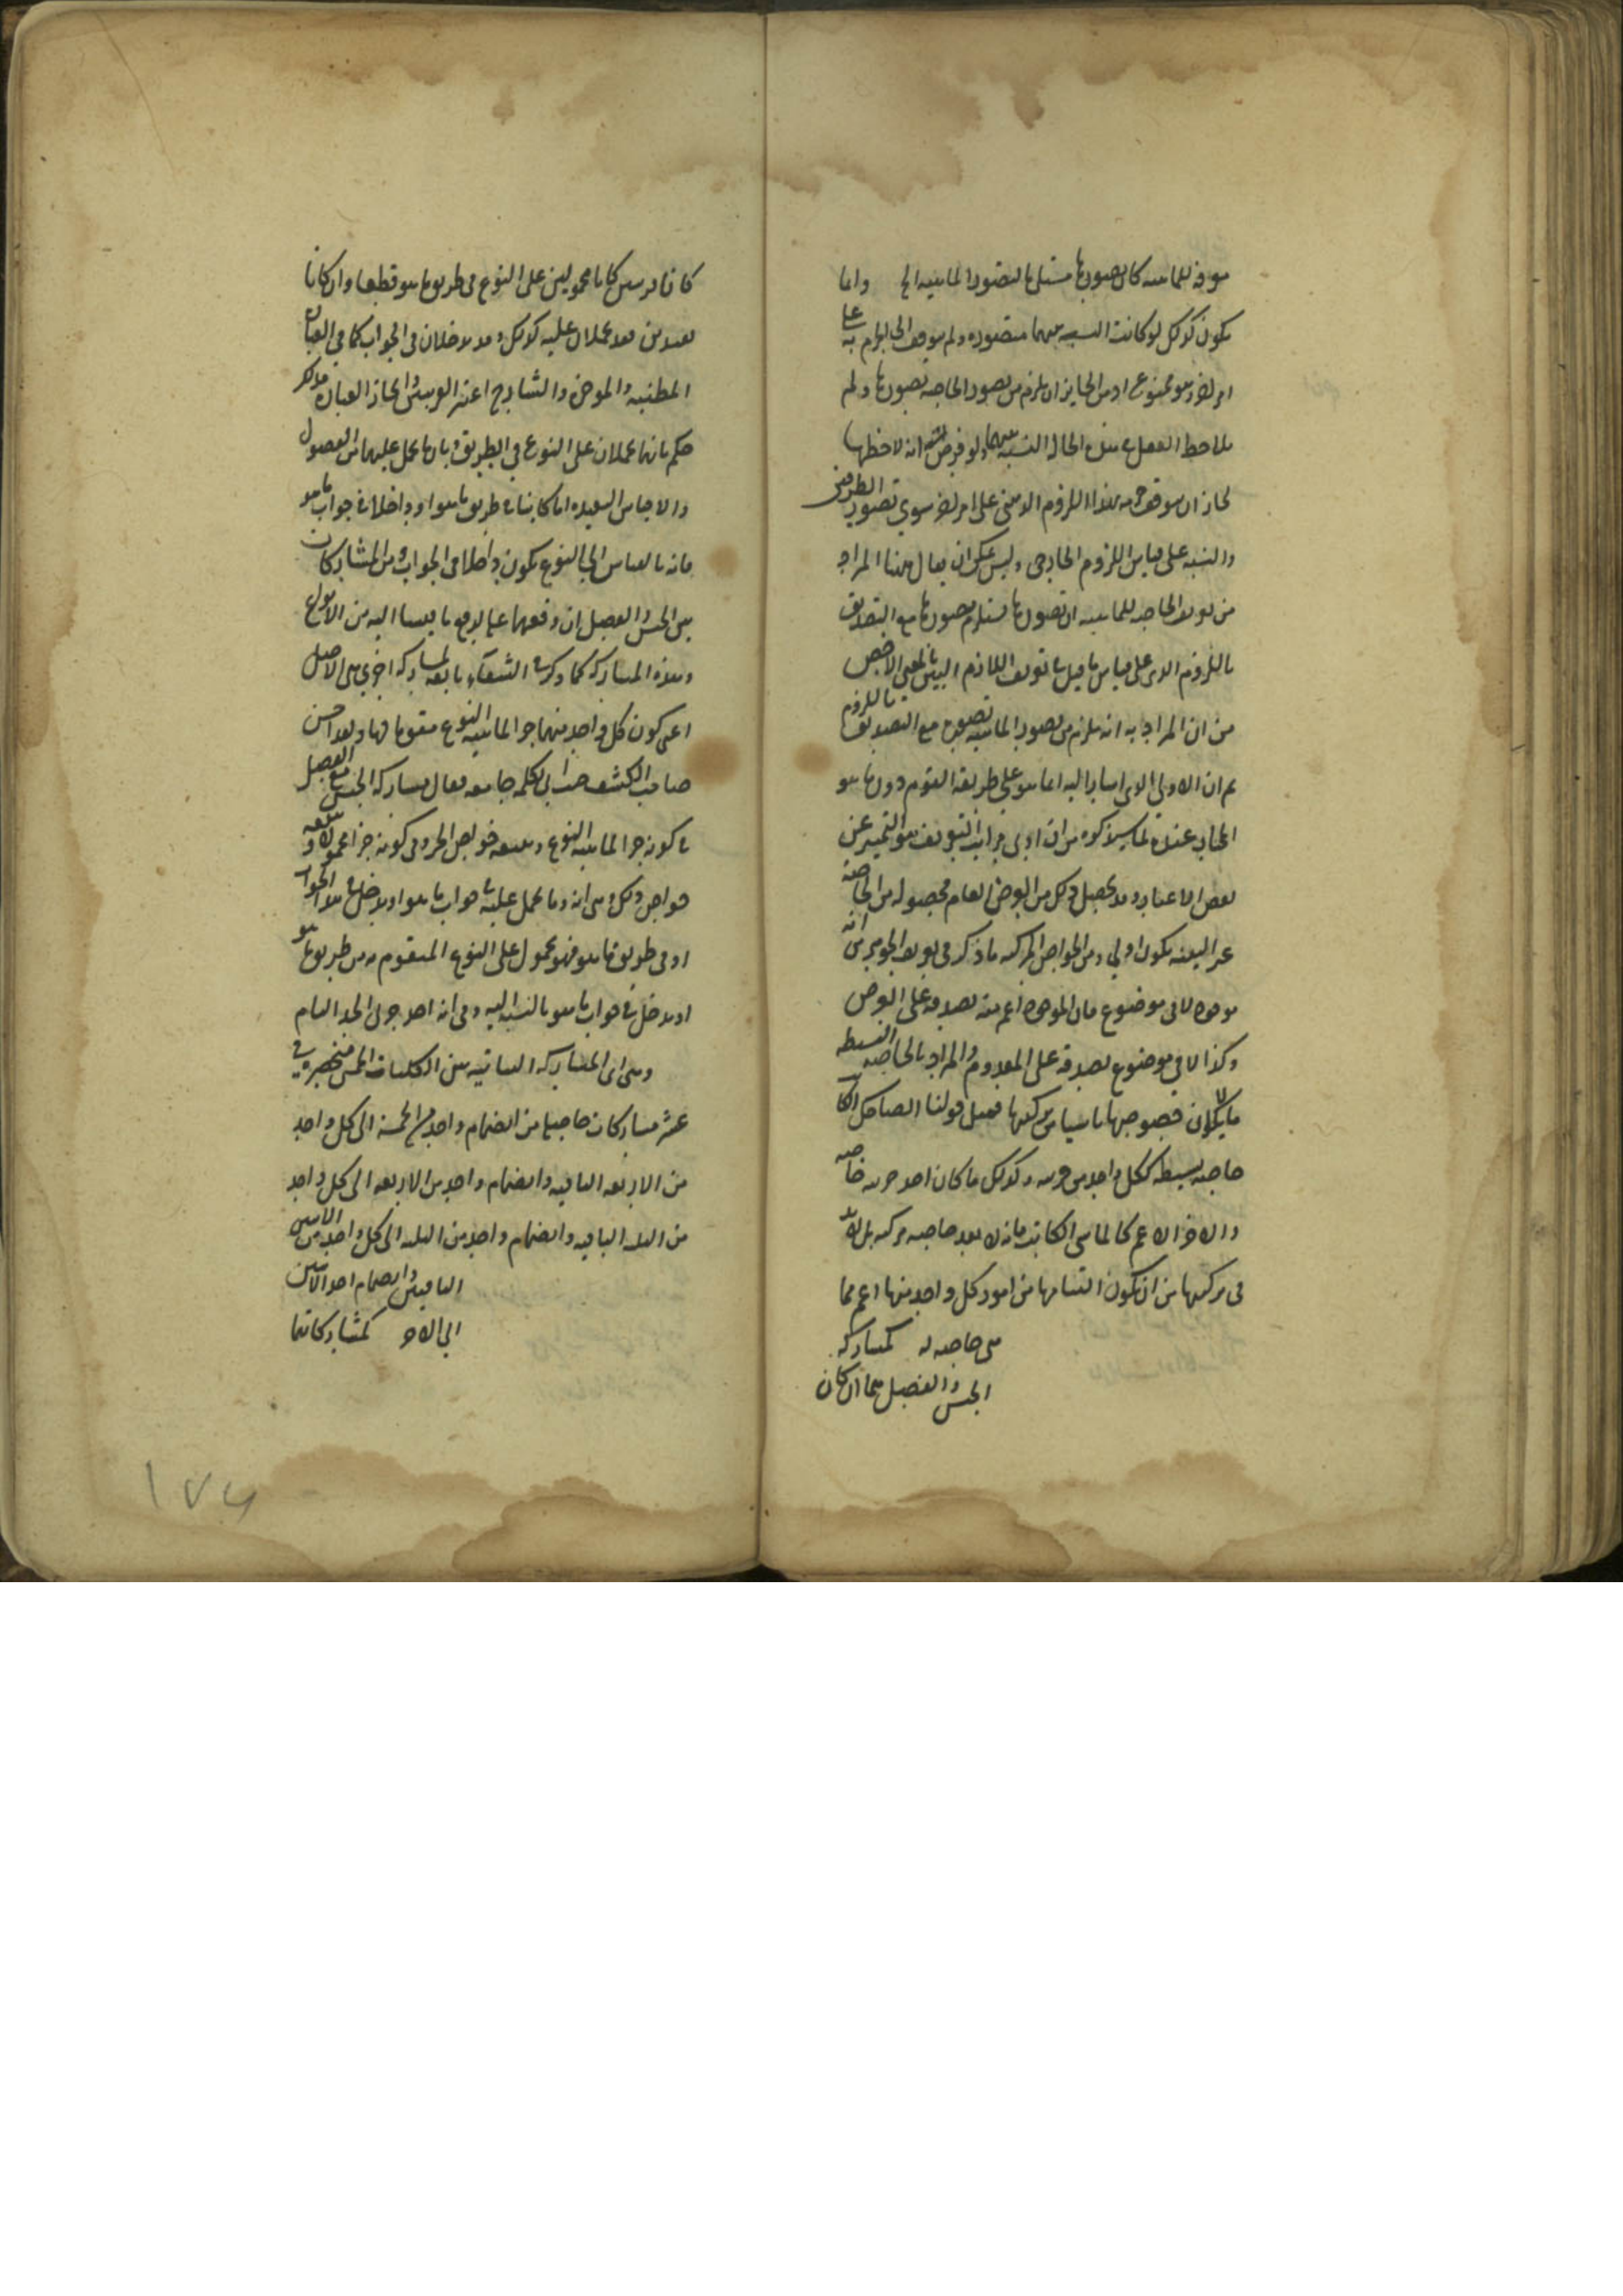 معرفة للماهية كان تصورها مستلزما لتصور الماهية الخ وانما
يكون كذلك لو كانت النسبة بينهما متصورة ولم يتوقف الجزم به على
امر اخر وهو ممنوع اذ من الجايز ان يلزم من تصور الخاصة تصورها ولم
يلاحظ العقل في هذه الحالة النسبة بينهما ولو فرض انه لاحظها
لجاز ان يتوقف هذا اللزوم الذهني على امر اخر سوى تصور الطرفين
والنسبة على قياس اللزوم الخارجي وليس يمكن ان يقال هنا المراد
من تعريف الخاصة للماهية ان تصورها يستلزم تصورها مع التصديق
باللزوم الذي على قياس ما قيل في تعريف اللازم البين بالمعنى الاخص
من ان المراد به انه يلزم من تصور الماهية تصوره مع التصديق باللزوم
ثم ان الاولى الذي اشار اليه انما هو على طريقة القوم دون ما هو
المختار عنده لما سيذكره من ان ادنى مراتب التعريف هو التمييز عن
بعض الاغيار وقد يحصل ذلك من العرض العام فحصوله من الخاصة
غير البينة يكون اولى ومن الخواص المركبة ما ذكر في تعريف الجوهر من انه
موجود لا في موضوع فان الموجود اعم منه لصدقه على العرض
وكذا لا في موضوع لصدقه على المعدوم والمراد بالخاصة البسيطة
ما لا يكون خصوصها ناشيا من تركيبها فمثل قولنا الضاحك الكاتب
خاصة بسيطة ككل واحد من جزئيه وكذلك ما كان احد جزئيه خاصة
والاخر الاعم كالماشي الكاتب فانه لا يعد خاصة مركبة بل لا بد
في تركيبها من ان يكون التئامها من امور كل واحد منها اعم مما
هي خاصة له كمشاركة
الجنس والفصل هما ان كان
كانا قريبين كانا محمولين على النوع في طريق ما هو قطعا وان كانا
بعيدين فقد يحملان عليه كذلك وقد يدخلان في الجواب كما في العبارة
المطنبة والموجزة والشارح اعتبر القريبين والمجاز العبارة فلذلك
حكم بانهما يحملان على النوع في الطريق وبان ما يحمل عليهما من الفصول
والاجناس البعيدة اما كائنا في طريق ما هو او داخلا في جواب ما هو
فانه بالقياس الى النوع يكون داخلا في الجواب ومن المشاركات
بين الجنس والفصل ان رفعهما علة لرفع ما ينسبا اليه من الانواع
وهذه المشاركة كما ذكر في الشفاء تابعة لمشاركة اخرى هي الاصل
اعني كون كل واحد منهما جزء الماهية النوع مقوما لها ولقد احسن
صاحب الكشف حيث اتى بكلمة جامعة فقال يشارك الجنس الفصل
في كونه جزءا لماهية النوع ويتبعه خواص الجزء وفي كونه جزءا محمولا ويتبعه
خواص ذلك وهي انه وما يحمل عليه في جواب ما هو او يدخل في هذا الجواب
او في طريق ما هو فهو محمول على النوع المتقوم به من طريق ما هو
او يدخل في جواب ما هو بالنسبة اليه وفي انه احد جزئي الحد التام
وهي اي المشاركة الثنائية بين الكليات الخمس منحصرة في
عشر مشاركات حاصلة من انضمام واحد من الخمسة الى كل واحد
من الاربعة الباقية وانضمام واحد من الاربعة الى كل واحد
من الثلثة الباقية وانضمام واحد من الثلثة الى كل واحد من الاثنين
الباقيين وانضمام احد الاثنين
الى الاخر كمشاركاتها
١٧٤